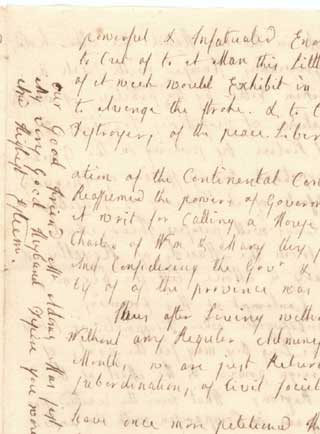 powerful & Infatuated En
to Cut of to a Man this Little
of it week would Exhibit in
to Avenge the Stroke. & to C
Distroyers, of the peace Liber
ation of the Continental Con
Reassumed the powers of Governm
a writ for Calling a House
Charter of Wm & Mary
And Considering the Govr &
ty of of the province was
Thus after Living with
Without any Regular
Month, we are just Retur
subordination, of Civil Societ
have once more petitioned th
our Good friend Mr Adams Has just
My Very Good Husband
the Highest Esteem.